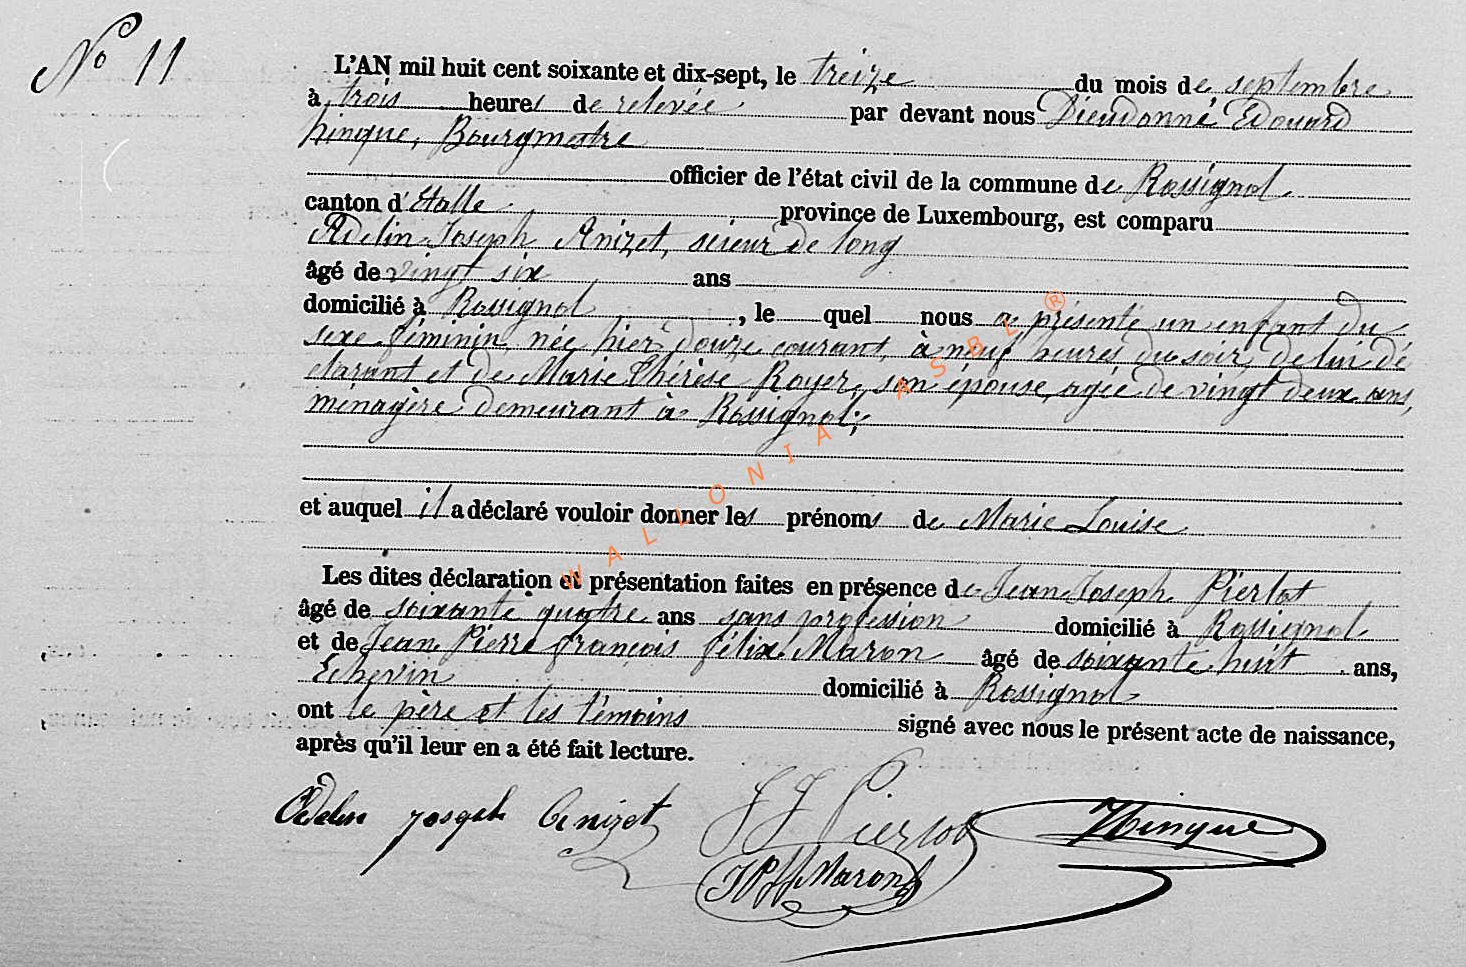 No 11
L'AN mil huit cent soixante et dix-sept, le treize du mois de septembre
à trois heures de relevée par devant nous Dieudonné Edouard
hinque, Bourgmestre
officier de l'état civil de la commune de Rossignol
canton d'Etalle province de Luxembourg, est comparu
Adelin Joseph Anizet, scieur de long
âgé de vingt six ans
domicilié à Rossignol, le quel nous a présenté un enfant du
sexe féminin, née hier douze courant, à neuf heures du soir, de lui dé
clarant et de Marie Thérèse Royer, son épouse, agée de vingt deux ans,
ménagère demeurant à Rossignol;
et auquel il a déclaré vouloir donner les prénoms de Marie Louise
Les dites déclaration et présentation faites en présence de Jean Joseph Pierlot
âgé de soixante quatre ans sans profession domicilié à Rossignol
et de Jean Pierre françois félix Maron âgé de soixante huit ans,
Echevin domicilié à Rossignol
ont le père et les témoins signé avec nous le présent acte de naissance,
après qu'il leur en a été fait lecture.
Adelin Joseph Anizet J J Pierlot Hinque
JPff Maron
WALLONIA ASBL ®